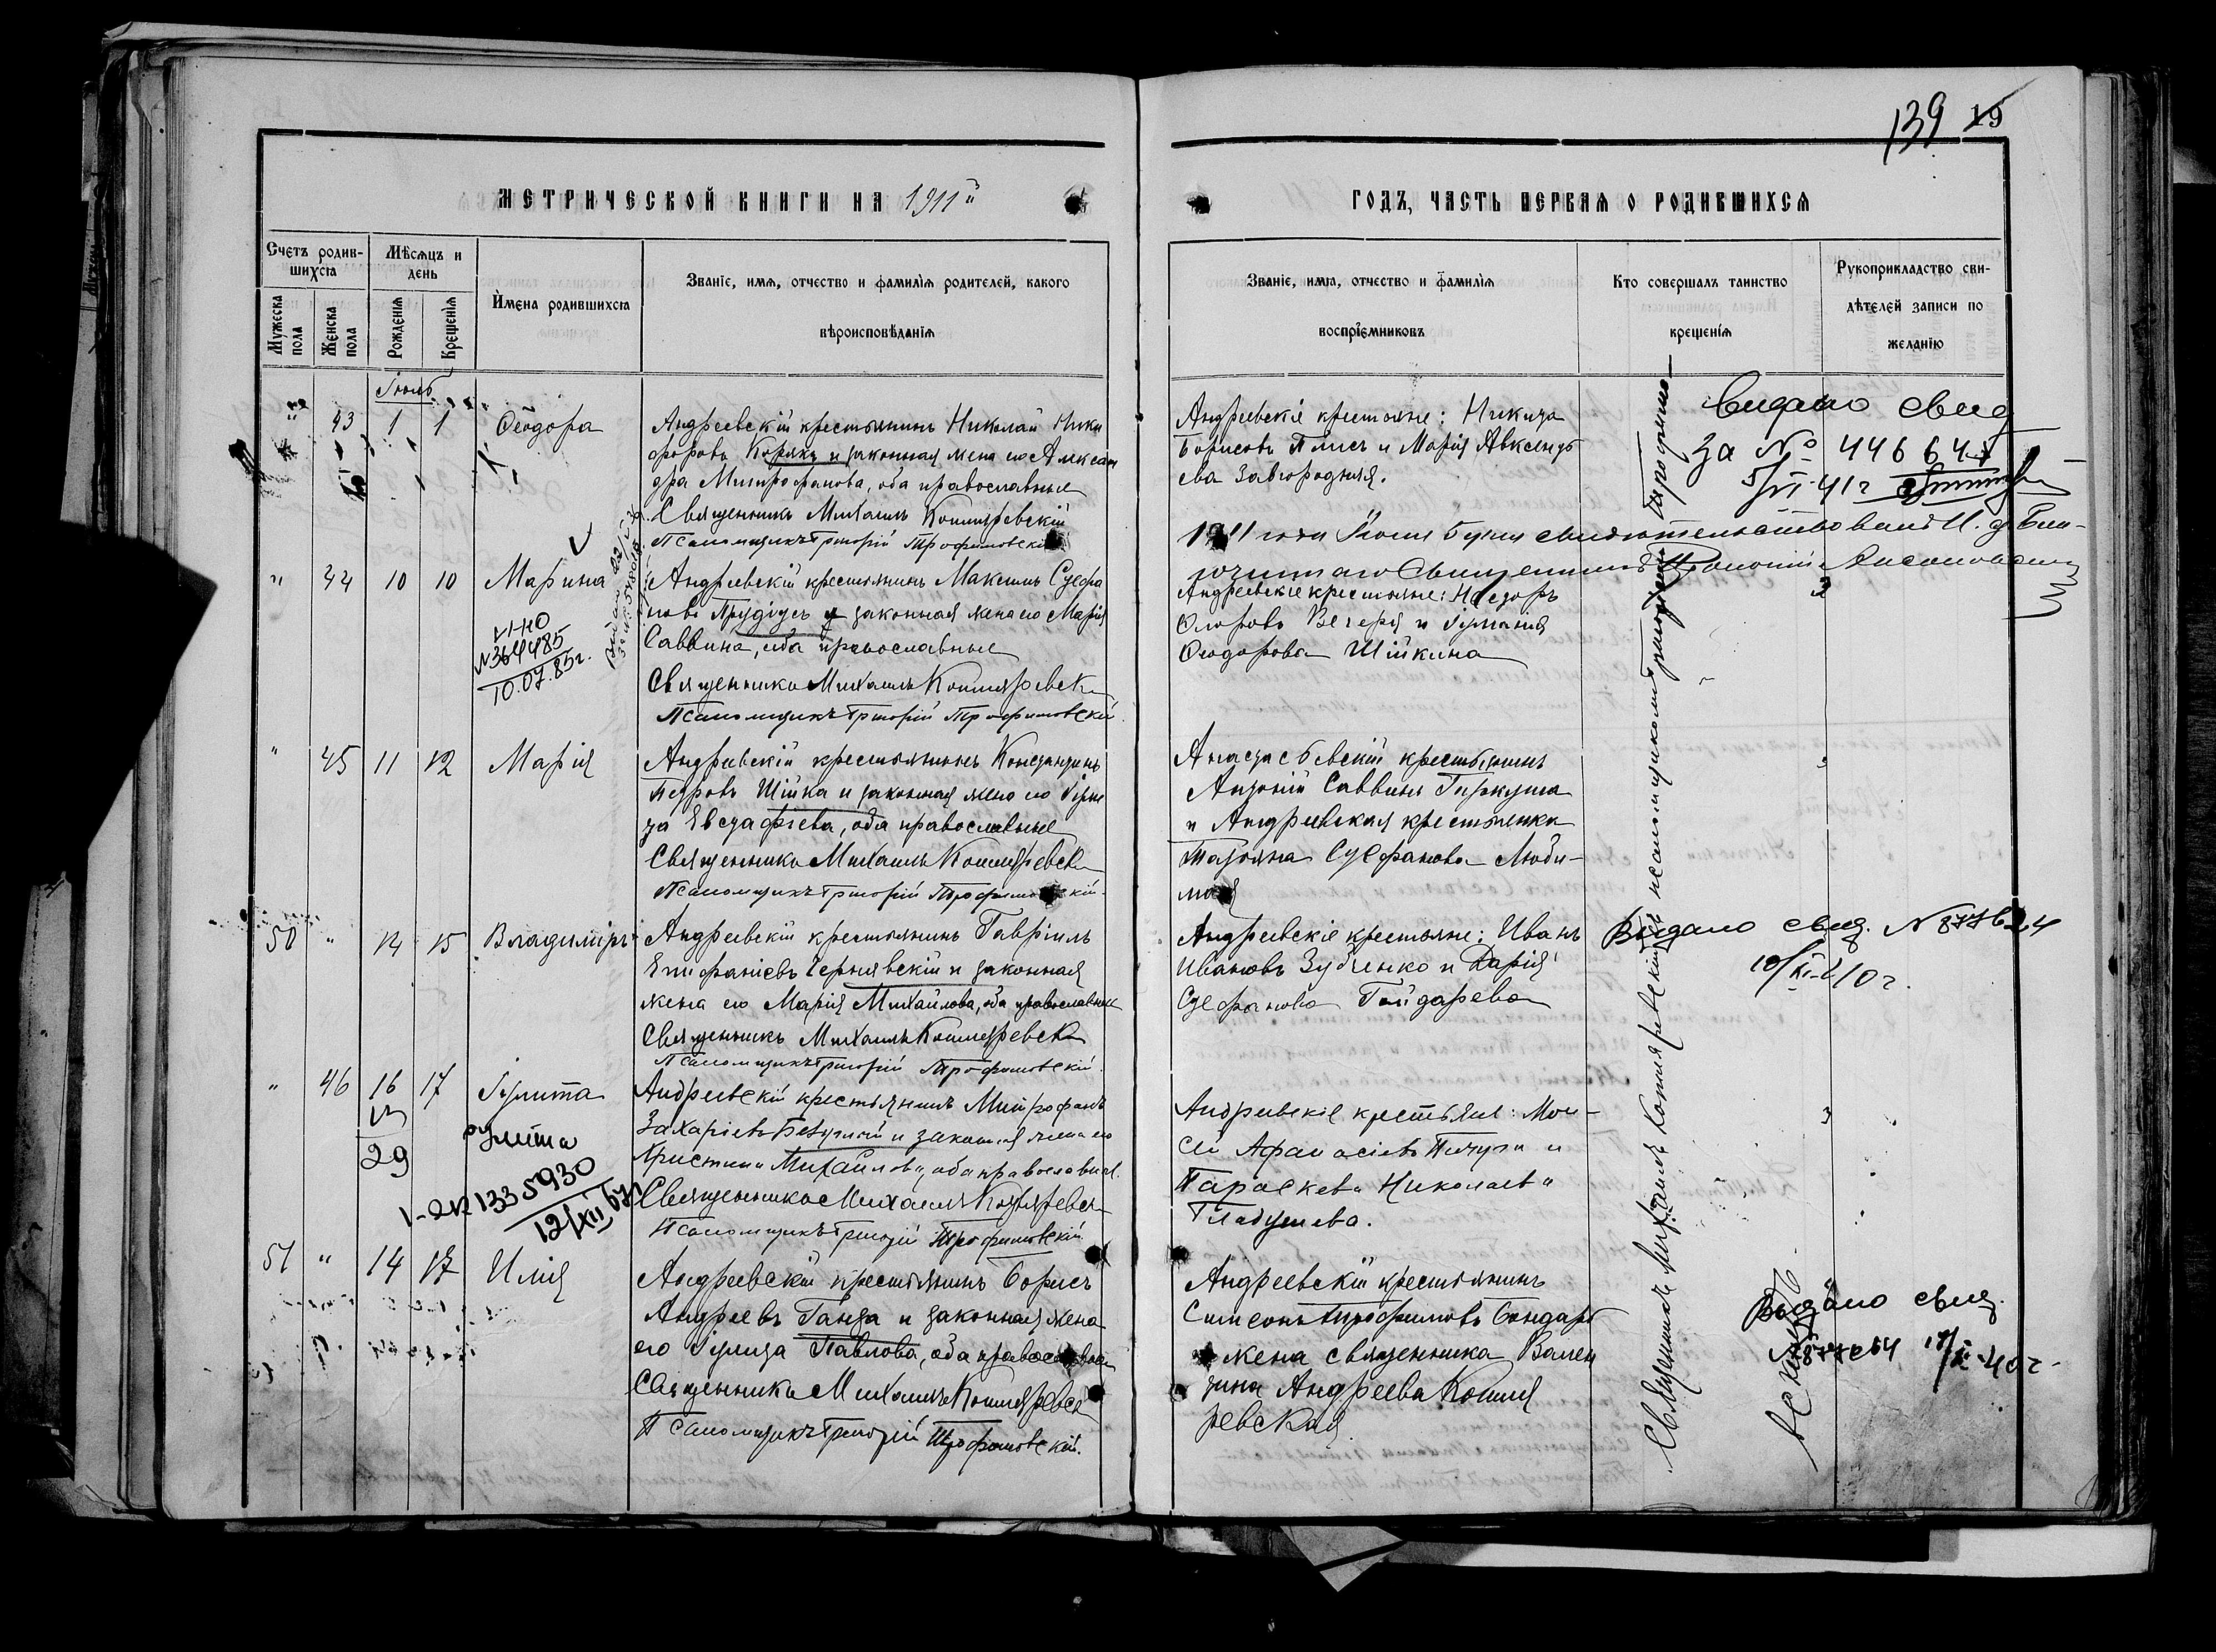 139 19
МЕТРИЧЕСКОЙ КНИГИ НА 1911й
ГОДЪ, ЧАСТЬ ПЕРВАЯ О РОДИВШИХСЯ
Счетъ родив-
шихся
Мѣсяцъ и
день
Мужеска
пола
Женска
пола
Рожденія
Крещенія
Имена родившихся
Званіе, имя, отчество и фамилія родителей, какого
вѣроисповѣданія
Званіе, имя, отчество и фамилія
воспріемниковъ
Кто совершалъ таинство
крещенія
Рукоприкладство сви-
дѣтелей записи по
желанію
Іюль
" 43 1 1 Ѳеодора
Андреевскій крестьянинъ Николай Ники
форовъ Коряка и законная жена его Алексан
дра Митрофанова, оба православные
Священникъ Михаилъ Котляревскій
Псаломщикъ Григорій Трофимовскій
Андреевскіе крестьяне: Никита
Борисовъ Плисъ и Марія Авксентъ
ева Завгородняя.
Видано свид
за № 446647
5/VI-41г
" 44 10 10 Марина
V1-НО
№364485
10.07.85г.
Андреевскій крестьянинъ Максимъ Стефа
новъ Прудіусъ и законная жена его Марія
Саввина, оба православные
Священникъ Михаилъ Котляревск
Псаломщикъ Григорій Трофимовскій
1911 года Іюля
Андреевскіе крестьяне: Несторъ
Вечеря и Іуліанія
Ѳеодорова Шійкина
" 45 11 12 Марія
Андреевскій крестьянинъ Константинъ
Петровъ Шійка и законная жена его Іули
та Евстафіева, оба православные
Священникъ Михаилъ Котляревск
Псаломщикъ Григорій Трофимовскій
Анастасьевскій крестьянинъ
Антоній Саввинъ Гиркуша
и Андреевская крестьянка
Татіяна Стефанова Люби-
мая
50 " 14 15 Владиміръ
Андреевскій крестьянинъ Гавріилъ
Епифаніевъ Чернявскій и законная
жена его Марія Михайлова, оба православные
Священникъ Михаилъ Котляревск
Псаломщикъ Григорій Трофимовскій
Андреевскіе крестьяне: Иванъ
Ивановъ Зубченко и Дарія
Стефанова Гайдарева
Выдано свид. № 877624
" 46 16 17 Іулитта
29
Улита
1335930
12/XII
Андреевскій крестьянинъ Митрофанъ
Захаріевъ и законная жена его
Христина Михайлова, оба православные.
Священникъ Михаилъ Котляревск
Псаломщикъ Григорій Трофимовскій
Андреевскіе крестьяне: Мои-
сей Афанасіевъ и
Параскева Николаева
Гладушева.
51 " 14 17 Илія
Андреевскій крестьянинъ Борисъ
Андреевъ Ганжа и законная жена
его Іулита Павлова, оба православные
Священникъ Михаилъ Котляревск
Псаломщикъ Григорій Трофимовскій.
Андреевскій крестьянинъ
Симеонъ Трофимовъ Бондарь
и жена священника Вален
тина Андреева Котля
ревская.
Выдано свид.
Священникъ Михаилъ Котляревскій съ псаломщикомъ Григоріемъ Трофимо-